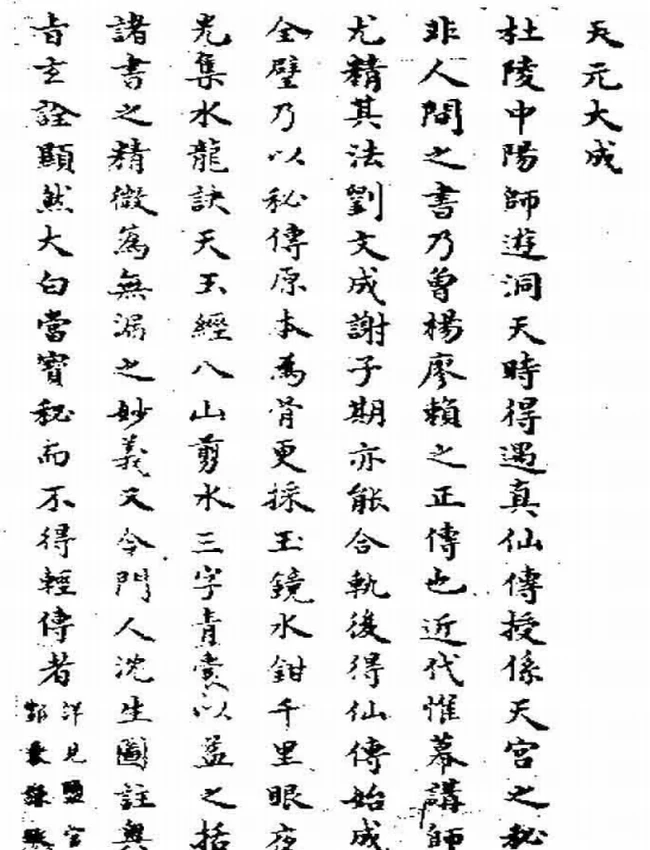 天元大成
杜陵中陽師遊洞天時得遇真仙傳授係天宮之秘
非人間之書乃曾楊廖賴之正傳也近代惟幕講師
尤精其法劉文成謝子期亦能合軌後得仙傳始成
全璧乃以秘傳原本為骨更採玉鏡水鉗千里眼夜
光集水龍訣天玉經八山剪水三字青囊以益之括
諸書之精微為無漏之妙義又令門人沈生圖註奧
旨玄詮顯然大白當寶秘而不得輕傳者
詳見鹽官